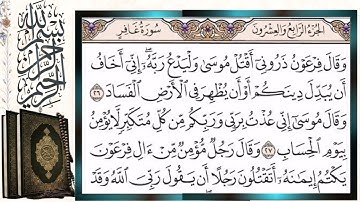 الجزء الرابع والعشرون
سورة غافر
وَقَالَ فِرْعَوْنُ ذَرُونِىٓ أَقْتُلْ مُوسَىٰ وَلْيَدْعُ رَبَّهُۥٓ إِنِّىٓ أَخَافُ
أَن يُبَدِّلَ دِينَكُمْ أَوْ أَن يُظْهِرَ فِى ٱلْأَرْضِ ٱلْفَسَادَ ٢٦
وَقَالَ مُوسَىٰٓ إِنِّى عُذْتُ بِرَبِّى وَرَبِّكُم مِّن كُلِّ مُتَكَبِّرٍ لَّا يُؤْمِنُ
بِيَوْمِ ٱلْحِسَابِ ٢٧ وَقَالَ رَجُلٌ مُّؤْمِنٌ مِّنْ ءَالِ فِرْعَوْنَ
يَكْتُمُ إِيمَٰنَهُۥٓ أَتَقْتُلُونَ رَجُلًا أَن يَقُولَ رَبِّىَ ٱللَّهُ وَقَدْ
بسم الله الرحمن الرحيم